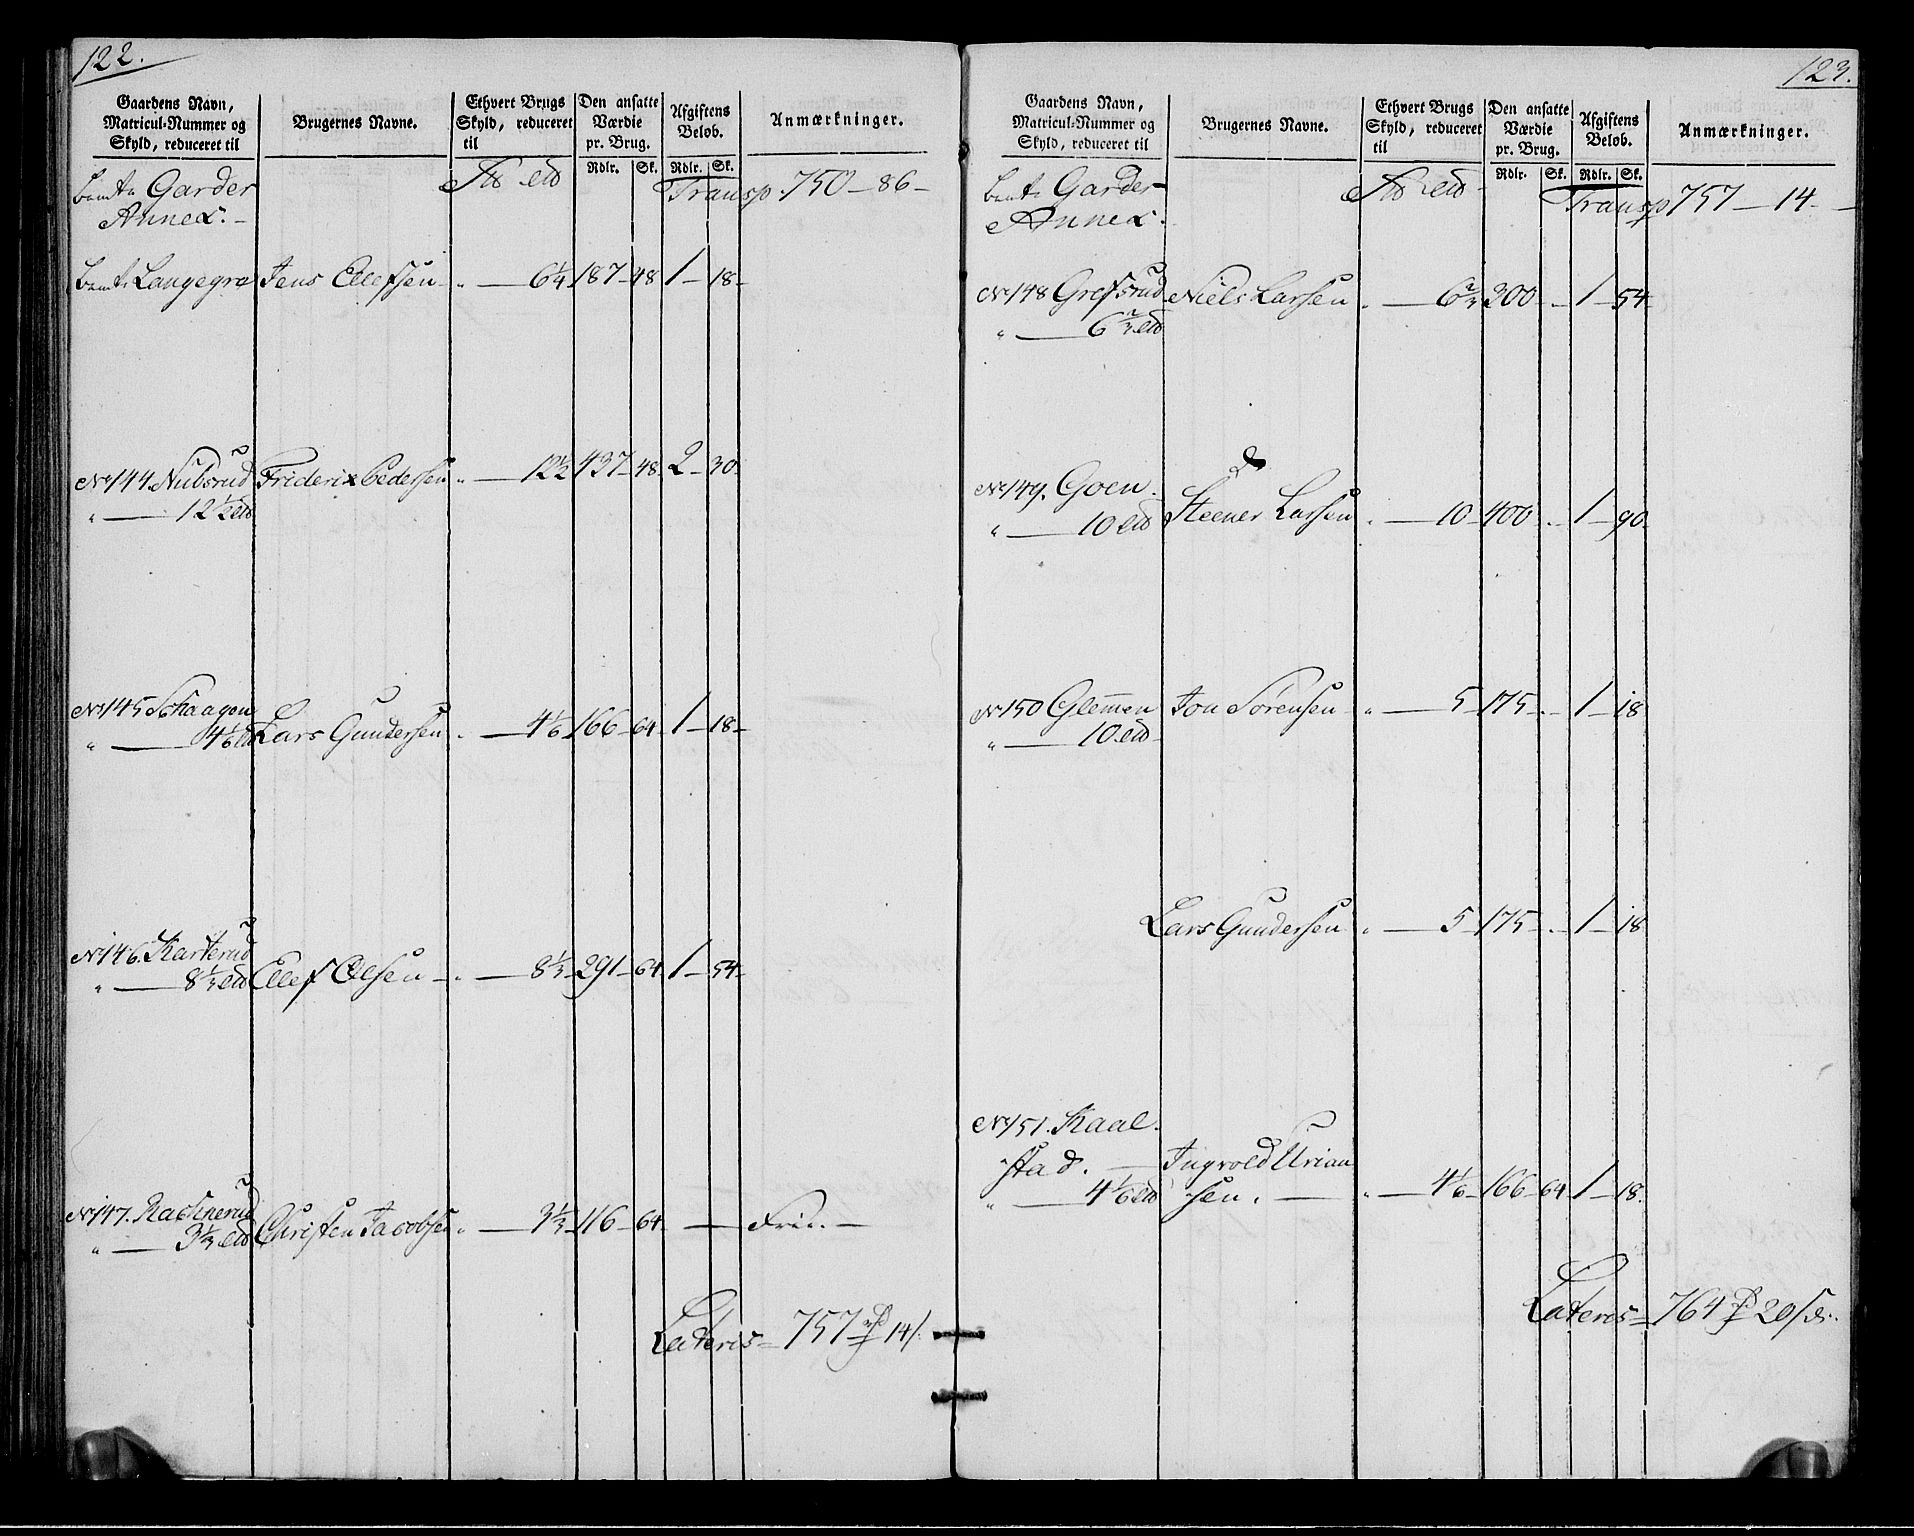 122.
Gaardens Navn, Matricul-Nummer og Skyld, reduceret til | Brugernes Navne. | Ethvert Brugs Skyld, reduceret til | Den ansatte Værdie pr. Brug. Rdlr. Sk. | Afgiftens Beløb. Rdlr. Sk. | Anmærkninger.
Garder Transp. 750 — 86 —
Annex. —
Langegra Jens Ellefsen — " — 6¼ 187 — 48 1 — 18 —
No 144. Nubsrud Friderix Pedersen " — 12½ 437 — 48 2 — 30 —
" — 12½
No 145 Skaagen Lars Gundersen " — 4⅙ 166 — 64 1 — 18 —
" — 4⅙
No 146. Karterud Ellef Olsen — " — 8⅓ 291 — 64 1 — 54 —
" — 8⅓
No 147. Rasknerud Christen Jacobsen " — 3⅓ 116 — 64 — Frie. —
" — 3⅓
Lateris = 757 14
123.
Gaardens Navn, Matricul-Nummer og Skyld, reduceret til | Brugernes Navne. | Ethvert Brugs Skyld, reduceret til | Den ansatte Værdie pr. Brug. Rdlr. Sk. | Afgiftens Beløb. Rdlr. Sk. | Anmærkninger.
Garder Transp 757 — 14 —
Annex.
No 148 Grefsrud Niels Larsen " — 6⅔ 300 — " — 1 — 54
" — 6⅔
No 149. Goen. Steener Larsen " — 10 — 400 " — 1 — 90
" — 10
No 150 Glemmen Jon Sörensen — " — 5 — 175 " — 1 — 18
" — 10
Lars Gundersen " — 5 — 175 — " — 1 — 18
No 151. Kaal-
stad. — Ingvold Urian
" — 4⅙ sen. — " — 4⅙ 166 — 64 1 — 18.
Lateris = 764 20